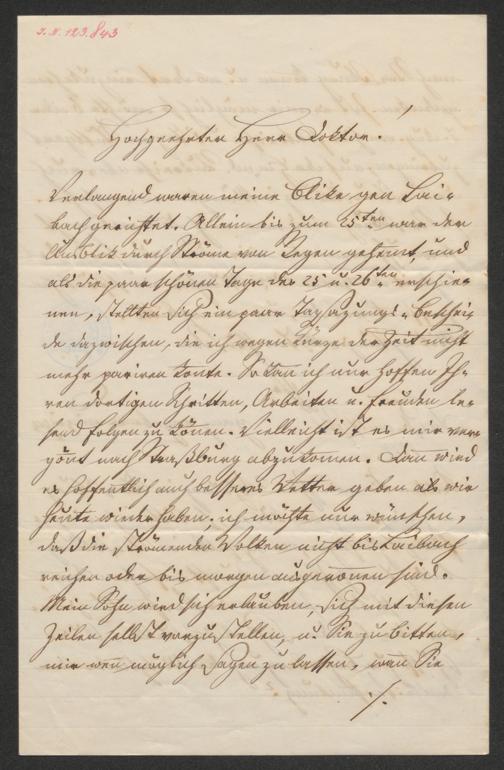 I.N. 123.843
Hochgeehrter Herr Doktor!
Verlangend waren meine Blike gen Lai-
bach gerichtet. Allein bis zum 25ten war der
Ausblik durch Ströme von Regen gehemt, und
als die paar schönen Tage des 25 u. 26ten erschie-
nen, stellten sich ein paar Tagsazungs-Beschei-
de dazwischen, die ich wegen Kürze der Zeit nicht
mehr pariren konte. So kan ich nur hoffen Ih-
ren dortigen Schritten, Arbeiten u. Freuden le-
send folgen zu könen. Vielleicht ist es mir ver-
gönt nach Straßburg abzukomen. Dan wird
es hoffentlich auch besseres Wetter geben als wir
heute wieder haben. ich möchte nur wünschen,
daß die strömenden Wolken nicht bis Laibach
reichen oder bis morgen ausgeronnen sind.
Mein Sohn wird sich erlauben, sich mit diesen
Zeilen selbst vorzustellen, u. Sie zu bitten,
mir wen möglich sagen zu lassen, wan Sie
./.